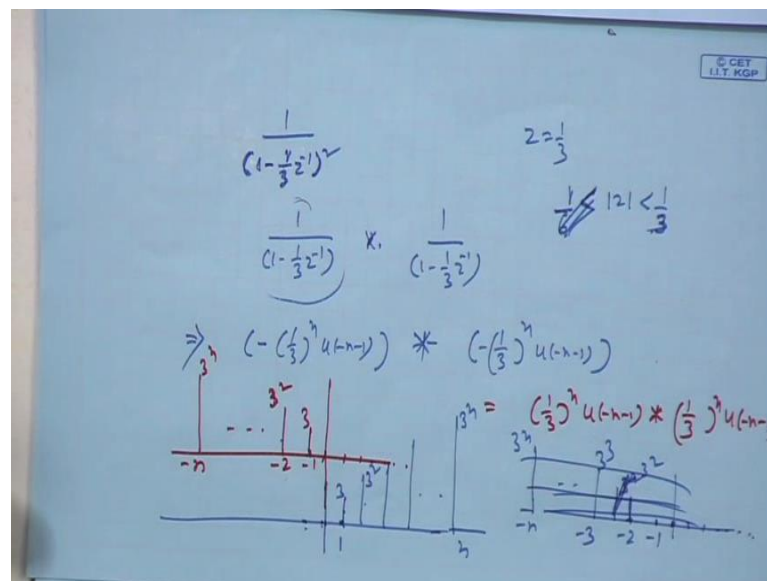 © CET
I.I.T. KGP
1/(1-1/3 z⁻¹)²
z = 1/3
|z| < 1/3
1/(1-1/3 z⁻¹) * 1/(1-1/3 z⁻¹)
⇒ (-(1/3)ⁿ u(-n-1)) * (-(1/3)ⁿ u(-n-1))
= (1/3)ⁿ u(-n-1) * (1/3)ⁿ u(-n-
3ⁿ --- 3² 3
-n -2 -1
3 3² .. 3ⁿ
1 n
3ⁿ -- 3³ 3²
-n -3 -2 -1